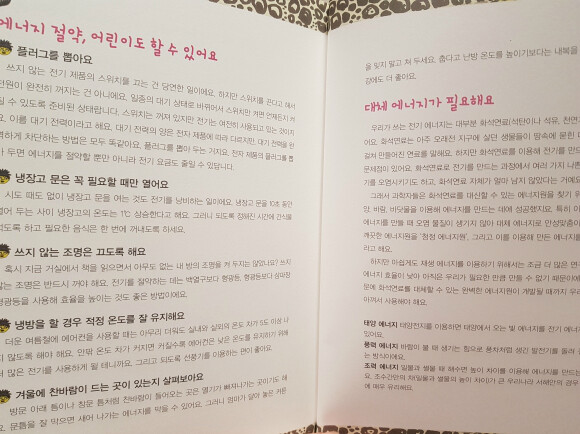 에너지 절약, 어린이도 할 수 있어요
플러그를 뽑아요
쓰지 않는 전기 제품의 스위치를 끄는 건 당연한 일이에요. 하지만 스위치를 끈다고 해서
전원이 완전히 꺼지는 건 아니에요. 일종의 대기 상태로 바뀌어서 스위치만 켜면 언제든지 켜
질 수 있도록 준비된 상태랍니다. 스위치는 꺼져 있지만 전기는 여전히 사용되고 있는 것이지
요. 이를 대기 전력이라고 해요. 대기 전력의 양은 전자 제품에 따라 다르지만, 대기 전력을 완
벽하게 차단하는 방법은 모두 똑같아요. 플러그를 뽑아 두는 거지요. 전자 제품의 플러그를 뽑
아 두면 에너지를 절약할 뿐만 아니라 전기 요금도 줄일 수 있답니다.
냉장고 문은 꼭 필요할 때만 열어요
시도 때도 없이 냉장고 문을 여는 것도 전기를 낭비하는 일이에요. 냉장고 문을 10초 동안
열어 두는 사이 냉장고의 온도는 1℃ 상승한다고 해요. 그러니 되도록 정해진 시간에 간식을
먹도록 하고 필요한 음식은 한 번에 꺼내도록 하세요.
쓰지 않는 조명은 끄도록 해요
혹시 지금 거실에서 책을 읽으면서 아무도 없는 내 방의 조명을 켜 두지는 않았나요? 쓰지
않는 조명은 반드시 꺼야 해요. 전기를 절약하는 데는 백열구보다 형광등, 형광등보다 삼파장
형광등을 사용해 효율을 높이는 것도 좋은 방법이에요.
냉방을 할 경우 적정 온도를 잘 유지해요
더운 여름철에 에어컨을 사용할 때는 아무리 더워도 실내와 실외의 온도 차가 5도 이상 나
지 않도록 해야 해요. 안팎 온도 차가 커지면 커질수록 에어컨은 낮은 온도를 유지하기 위해
더 많은 전기를 사용하게 될 테니까요. 그리고 되도록 선풍기를 이용하는 편이 좋아요.
겨울에 찬바람이 드는 곳이 있는지 살펴보아요
방문 아래 틈이나 창문 틈처럼 찬바람이 들어오는 곳은 열기가 빠져나가는 곳이기도 해
요. 문틈을 잘 막으면 새어 나가는 에너지를 막을 수 있어요. 그러니 엄마가 달아 놓은 커튼
을 잊지 말고 쳐 두세요. 춥다고 난방 온도를 높이기보다는 내복을
감에도 더 좋아요.
대체 에너지가 필요해요
우리가 쓰는 전기 에너지는 대부분 화석연료(석탄이나 석유, 천연
요. 화석연료는 아주 오래전 지구에 살던 생물들이 땅속에 묻힌
걸쳐 만들어진 연료를 말해요. 하지만 화석연료를 이용해 전기를 만드
문제점이 있어요. 화석연료로 전기를 만드는 과정에서 여러 가지 나쁜
기를 오염시키기도 하고, 화석연료 자체가 얼마 남지 않았다는 거예요
그래서 과학자들은 화석연료를 대신할 수 있는 에너지원을 찾기 위
양, 바람, 바닷물을 이용해 에너지를 만드는 데에 성공했지요. 특히 이
에너지를 만들 때 오염 물질이 생기지 않아 대체 에너지로 안성맞춤이
깨끗한 에너지원을 '청정 에너지원', 그리고 이를 이용해 만든 에너지를
라고 해요.
하지만 아쉽게도 재생 에너지를 이용하기 위해서는 조금 더 많은 연구
에너지 효율이 낮아 아직은 우리가 필요한 만큼 만들 수 없기 때문이에
문에 화석연료를 대체할 수 있는 완벽한 에너지원이 개발될 때까지 우리
아껴서 사용해야 해요.
태양 에너지 태양전지를 이용하면 태양에서 오는 빛 에너지를 전기 에너지
있어요.
풍력 에너지 바람이 불 때 생기는 힘으로 풍차처럼 생긴 발전기를 돌려
는 방식이에요.
조력 에너지 밀물과 썰물 때 해수면 높이 차이를 이용해 에너지를 만드는
요. 조수간만의 차(밀물과 썰물의 높이 차이)가 큰 우리나라 서해안의 경우
에 매우 유리해요.